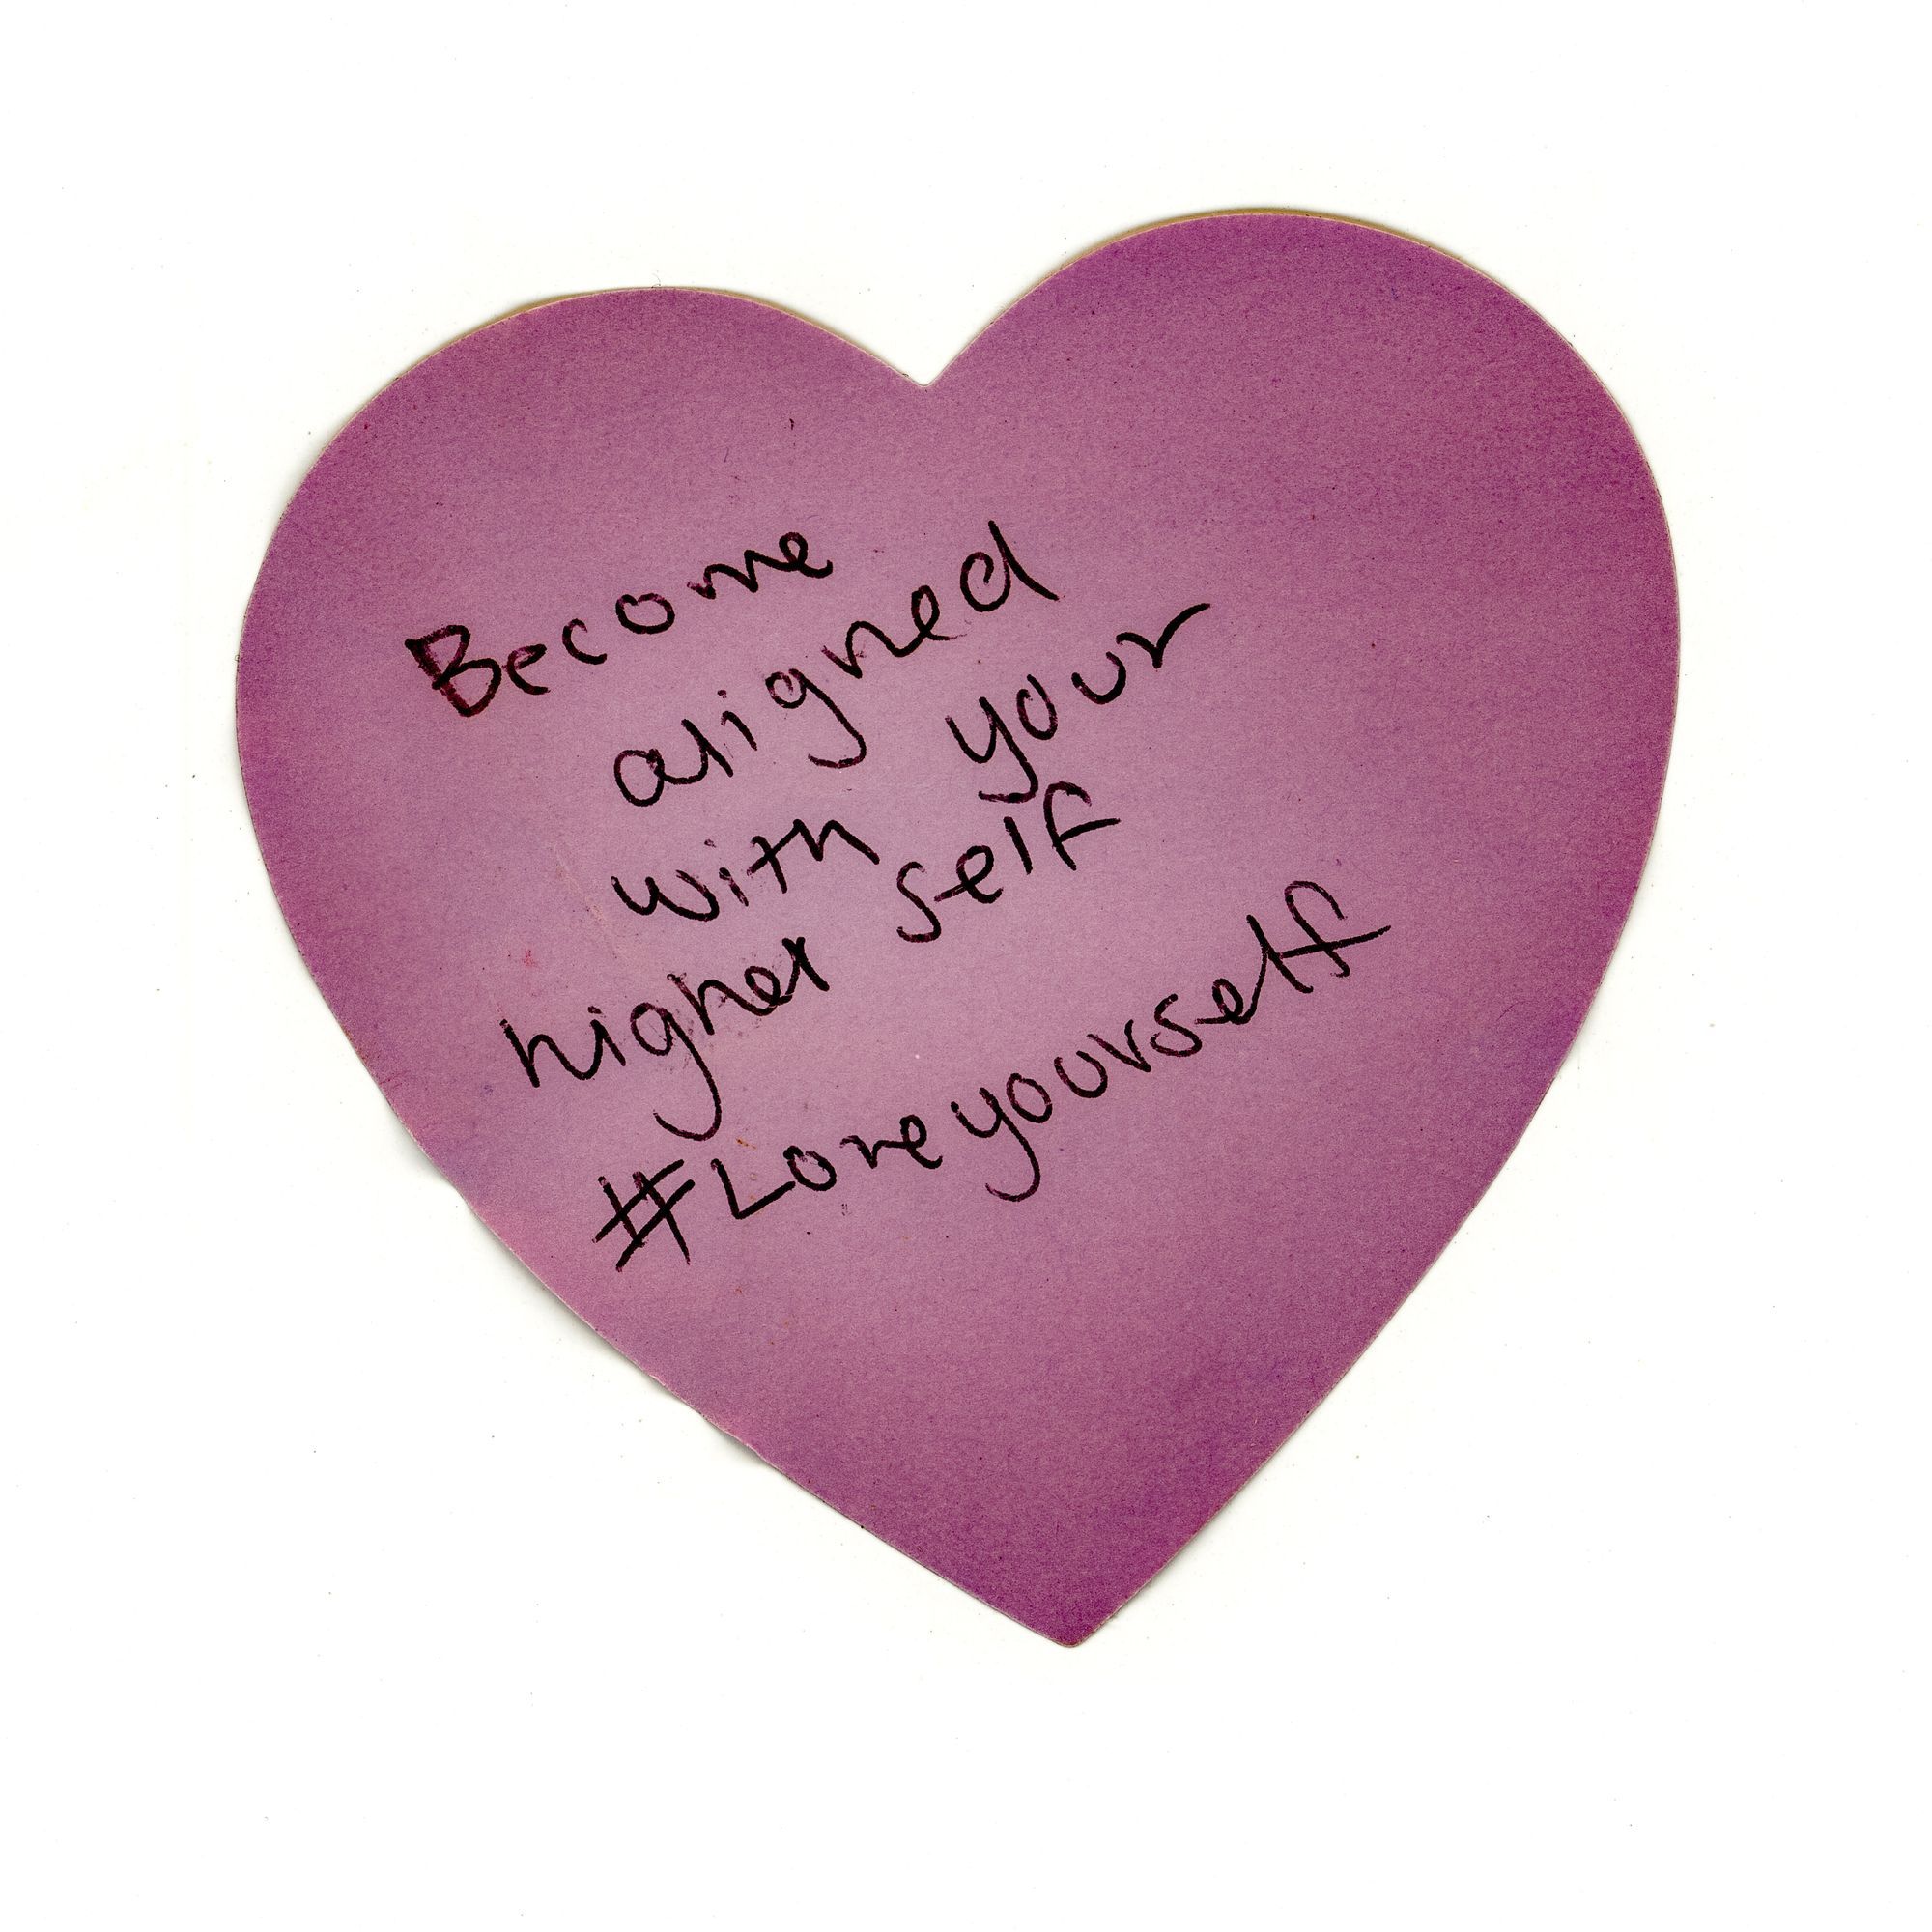 Become
aligned
with your
higher self
#Loveyourself